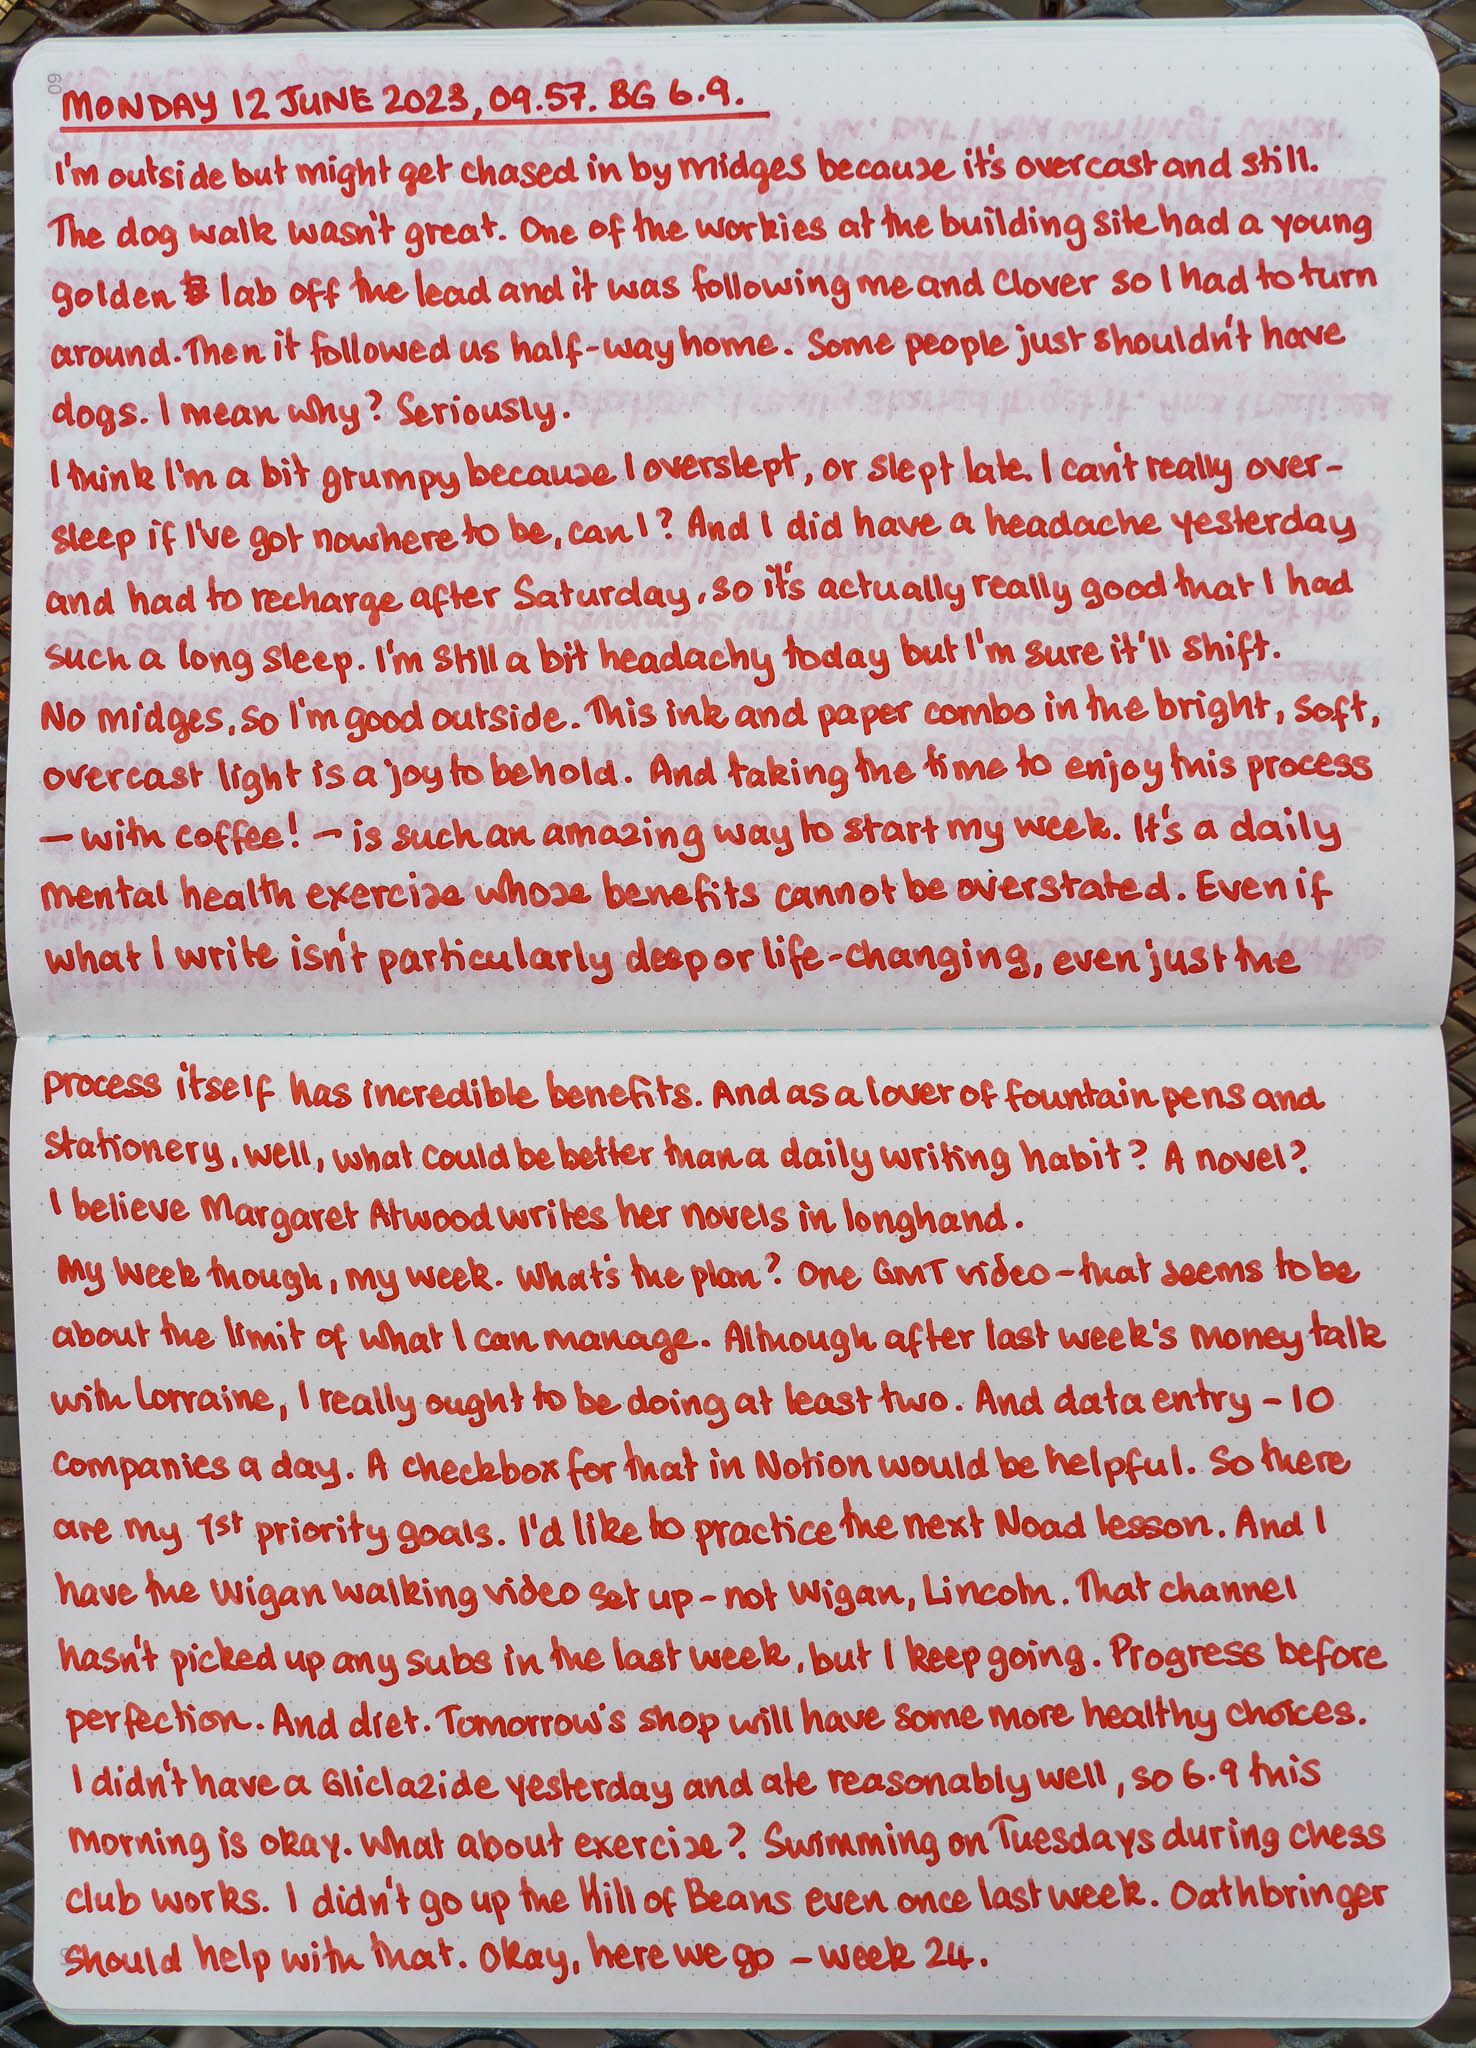 MONDAY 12 JUNE 2023, 09.57. BG 6.9.
I'm outside but might get chased in by midges because it's overcast and still.
The dog walk wasn't great. One of the workies at the building site had a young
golden lab off the lead and it was following me and Clover so I had to turn
around. Then it followed us half-way home. Some people just shouldn't have
dogs. I mean why? Seriously.
I think I'm a bit grumpy because I overslept, or slept late. I can't really over-
sleep if I've got nowhere to be, can I? And I did have a headache yesterday
and had to recharge after Saturday, so it's actually really good that I had
such a long sleep. I'm still a bit headachy today but I'm sure it'll shift.
No midges, so I'm good outside. This ink and paper combo in the bright, soft,
overcast light is a joy to behold. And taking the time to enjoy this process
– with coffee! – is such an amazing way to start my week. It's a daily
mental health exercise whose benefits cannot be overstated. Even if
what I write isn't particularly deep or life-changing, even just the
process itself has incredible benefits. And as a lover of fountain pens and
stationery, well, what could be better than a daily writing habit? A novel?
I believe Margaret Atwood writes her novels in longhand.
My week though, my week. What's the plan? One GMT video – that seems to be
about the limit of what I can manage. Although after last week's money talk
with Lorraine, I really ought to be doing at least two. And data entry – 10
companies a day. A checkbox for that in Notion would be helpful. So there
are my 1st priority goals. I'd like to practice the next Noad lesson. And I
have the Wigan walking video set up – not Wigan, Lincoln. That channel
hasn't picked up any subs in the last week, but I keep going. Progress before
perfection. And diet. Tomorrow's shop will have some more healthy choices.
I didn't have a Gliclazide yesterday and ate reasonably well, so 6.9 this
morning is okay. What about exercise? Swimming on Tuesdays during chess
club works. I didn't go up the Hill of Beans even once last week. Oathbringer
should help with that. Okay, here we go – week 24.